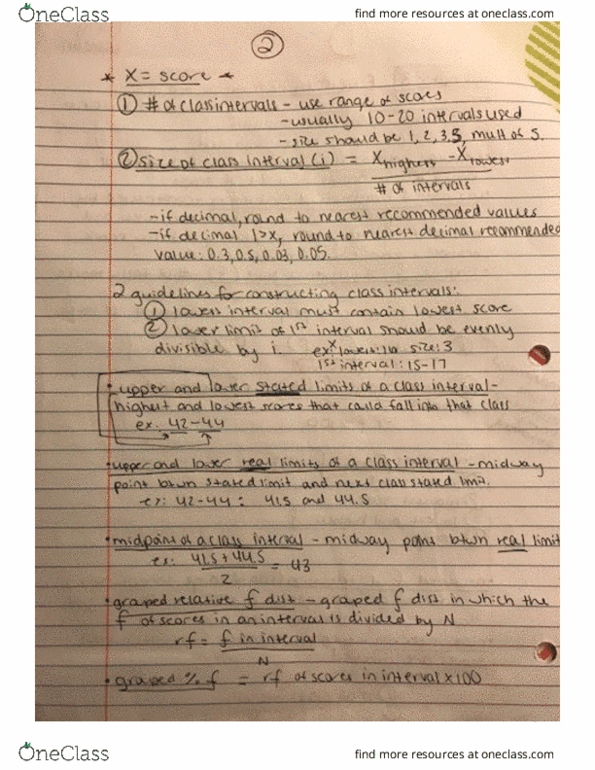 OneClass
find more resources at oneclass.com
2
* X = score *
① # of class intervals - use range of scores
- usually 10-20 intervals used
- size should be 1, 2, 3, 5, mult of 5.
② size of class interval (i) = X highest - X lowest
# of intervals
- if decimal, round to nearest recommended values
- if decimal 1>x, round to nearest decimal recommended
value: 0.3, 0.5, 0.03, 0.05.
2 guidelines for constructing class intervals:
① lowest interval must contain lowest score
② lower limit of 1st interval should be evenly
divisible by i. ex: X lowest: 16 size: 3
1st interval: 15-17
• upper and lower stated limits of a class interval -
highest and lowest scores that could fall into that class
ex: 42-44
• upper and lower real limits of a class interval - midway
point btwn stated limit and next class stated limit.
ex: 42-44: 41.5 and 44.5
• midpoint of a class interval - midway point btwn real limit
ex: 41.5 + 44.5 = 43
2
• graped relative f dist - graped f dist in which the
f of scores in an interval is divided by N
rf = f in interval
N
• graped % f = rf of scores in interval x 100
OneClass
find more resources at oneclass.com